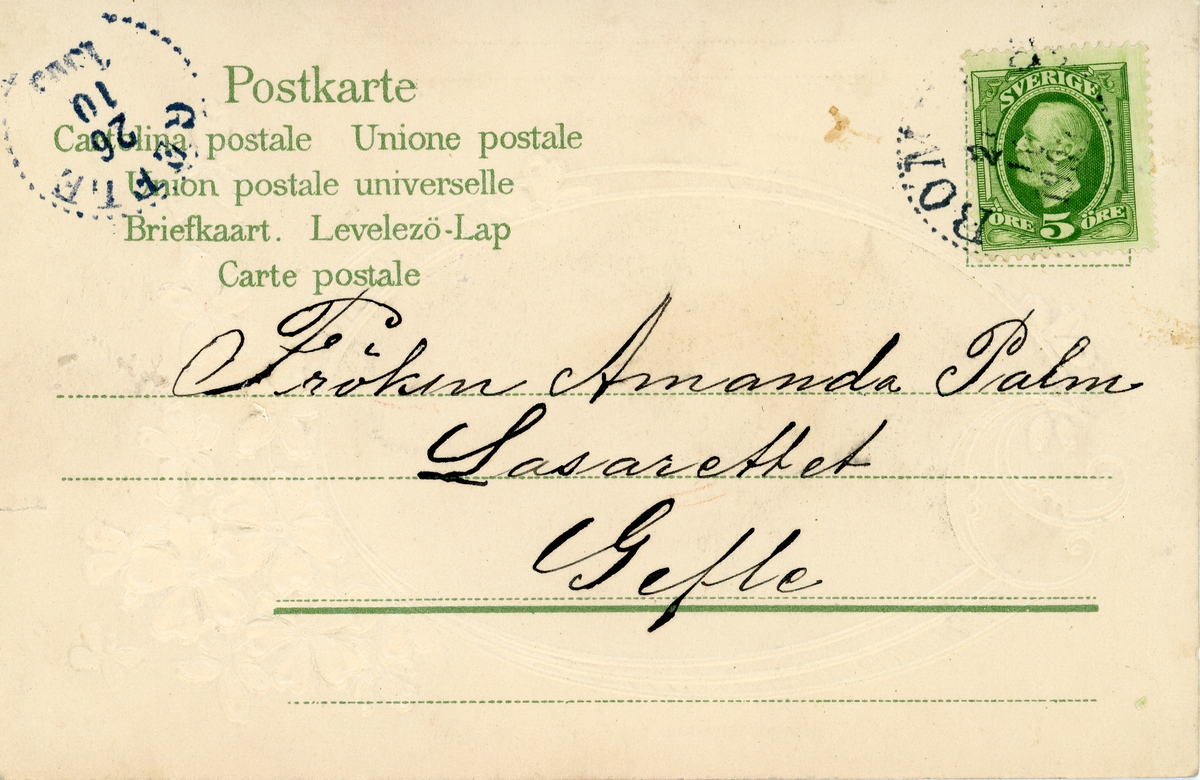 Postkarte
Cartolina postale Unione postale
Union postale universelle
Briefkaart. Levelezö-Lap
Carte postale
GEFLE
26
10
SVERIGE
ÖRE 5 ÖRE
Fröken Amanda Palm
Lasarettet
Gefle